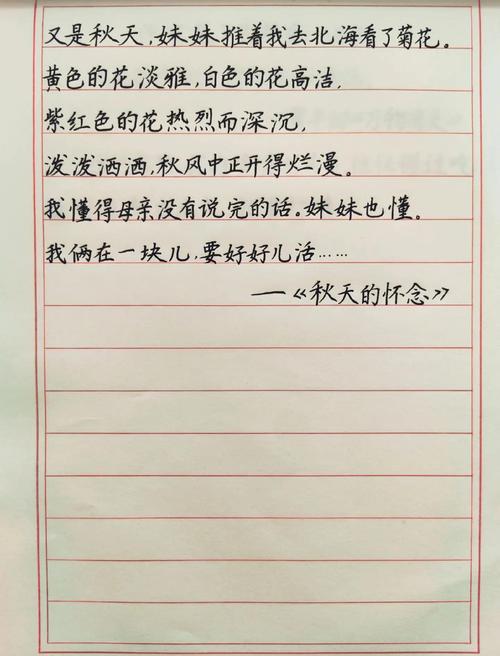 又是秋天,妹妹推着我去北海看了菊花。
黄色的花淡雅,白色的花高洁,
紫红色的花热烈而深沉,
泼泼洒洒,秋风中正开得烂漫。
我懂得母亲没有说完的话。妹妹也懂。
我俩在一块儿,要好好儿活……
—《秋天的怀念》